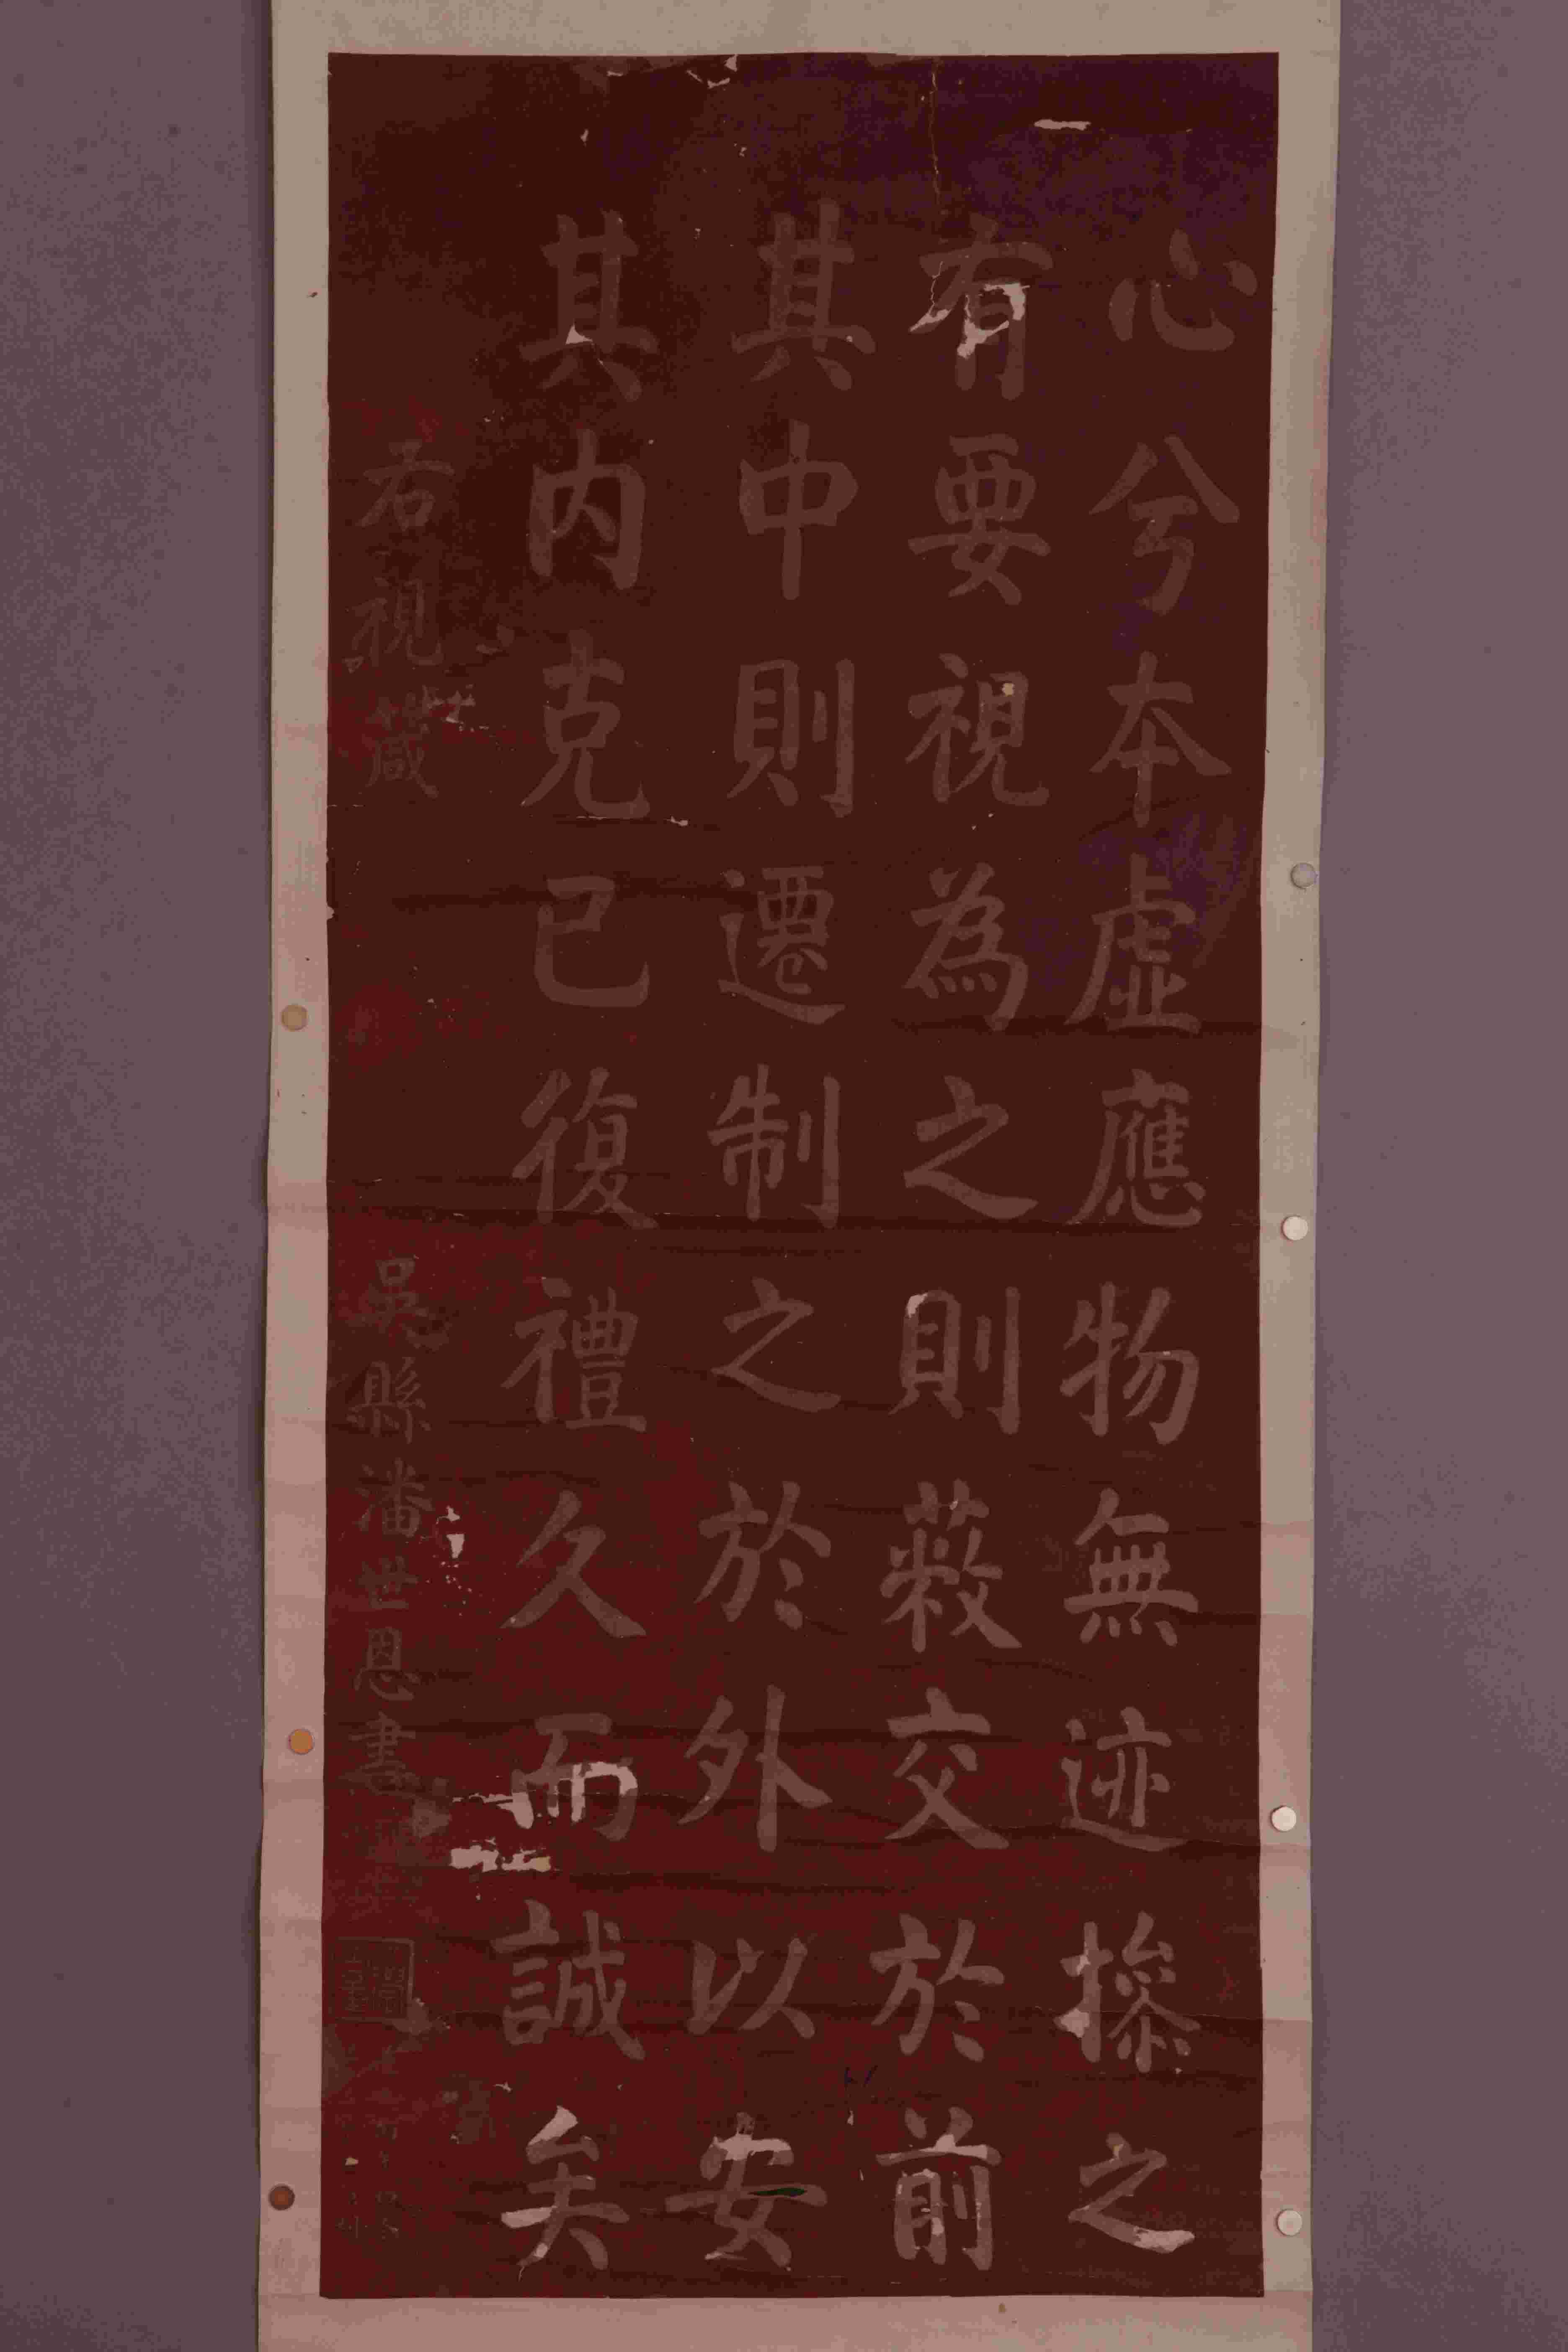 心兮本虛應物無迹操之
有要視為之則蔽交於前
其中則遷制之於外以安
其内克己復禮久而誠矣
右視箴
吳縣潘世恩書